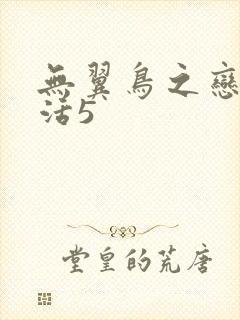 無翼鳥之戀
活5
堂皇的荒唐